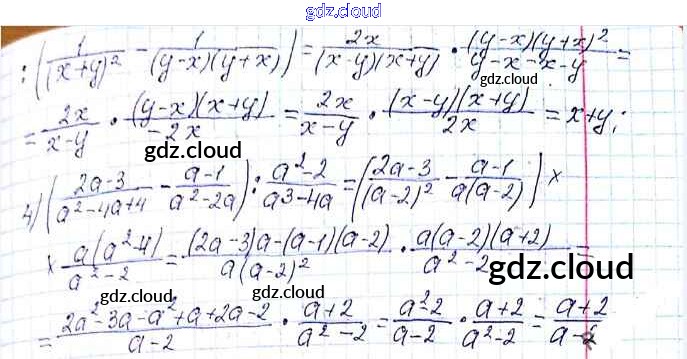 gdz.cloud
: (1/(x+y)² - 1/((y-x)(y+x))) = 2x/((x-y)(x+y)) · (y-x)(y+x)²/(y-x-x-y) =
gdz.cloud
= 2x/(x-y) · (y-x)(x+y)/(-2x) = 2x/(x-y) · (x-y)(x+y)/(2x) = x+y;
gdz.cloud gdz.cloud
4) ((2a-3)/(a²-4a+4) - (a-1)/(a²-2a)) : (a²-2)/(a3-4a) = ((2a-3)/(a-2)² - (a-1)/(a(a-2))) ×
× a(a²-4)/(a²-2) = ((2a-3)a-(a-1)(a-2))/(a(a-2)²) · a(a-2)(a+2)/(a²-2) =
gdz.cloud
gdz.cloud gdz.cloud gdz.cloud
= (2a²-3a-a²+a+2a-2)/(a-2) · (a+2)/(a²-2) = (a²2)/(a-2) · (a+2)/(a²-2) = (a+2)/(a-2)